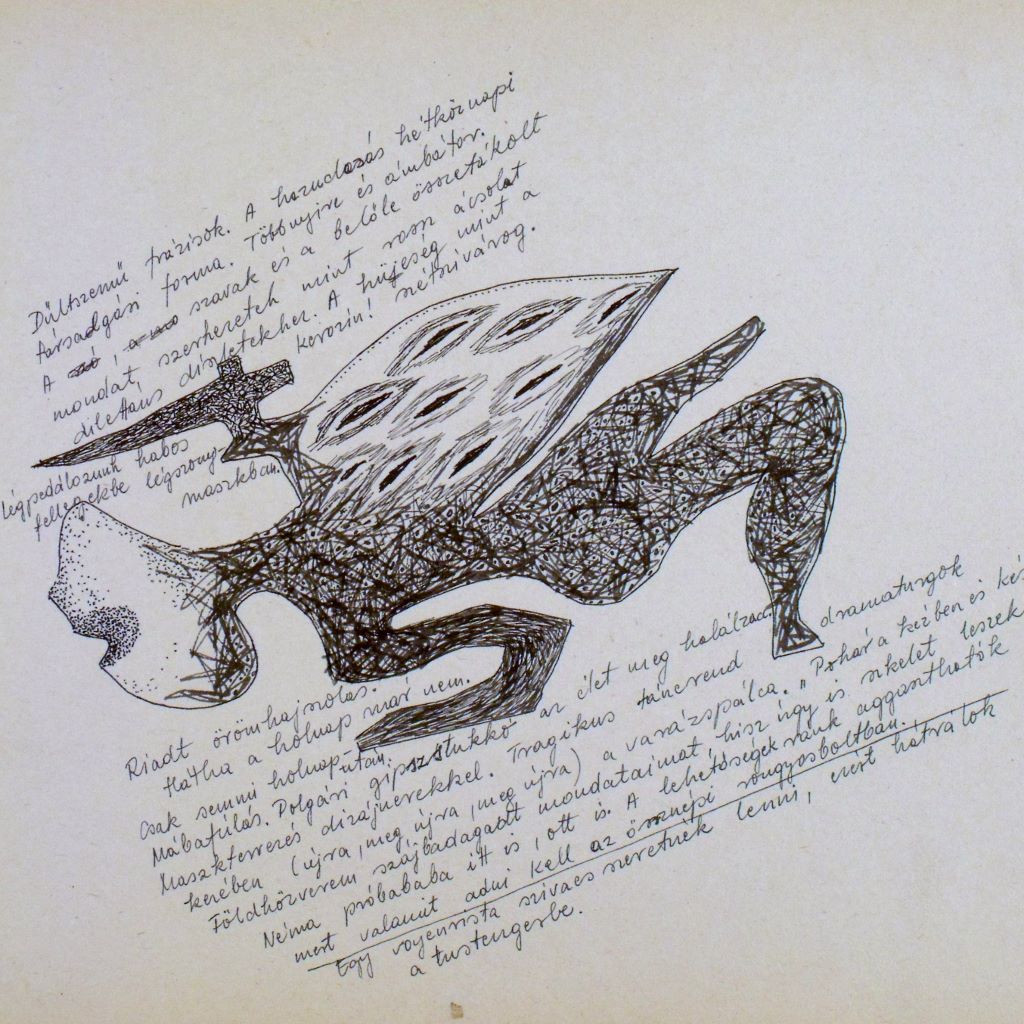 Dültszemű frázisok. A hazudozás hétköznapi
társadgási forma. Többnyire és ámbátor.
A szó, a szavak és a belőle összetákolt
mondat, szerkezetek mint rossz ácsolat
dilettáns díszletekhez. A hüjeség mint a
kerozin! szétszivárog.
légpedálozunk habos
fellegekbe légszomj-
maszkban.
Riadt örömhajszolás.
Hátha a holnap már nem.
Csak semmi holnapután.
Mábafúlás. Polgári gipszstukkó az élet meg halálzóna
Maszktervezés dizájnerekkel. Tragikus táncrend dramaturgok
kezében (újra, meg újra, meg újra) a varázspálca. "Pohár a kézben és
Földhözverem szájbadagadt mondataimat, hisz úgy is süket leszek
Néma próbababa itt is, ott is. A lehetőségek ránk aggaszthatók
mert valamit adni kell az össznépi rongyosboltban.
Egy voyeurista szivacs szeretnék lenni, ezért hátra
a tustengerbe.